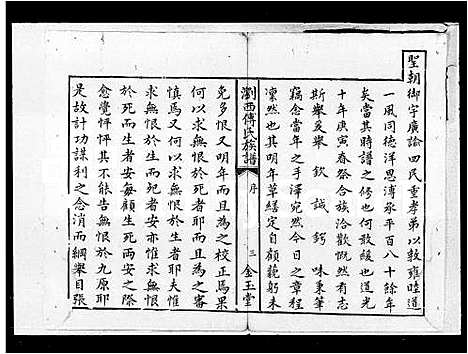 聖朝御宇廣諭四民重孝弟以敦雍睦道
一風同德洋恩溥承平百八十餘年
矣當其時譜之修也何敢緩也道光
十年庚寅春祭合族洽歡慨然有志
斯舉爰樂欽誠鍔味秉筆
竊念當年之手澤宛然今日之章程
凜然也其明年草繕定自顧範躬未
瀏西傅氏族譜 序 三 金玉堂
免多恨又明年而且為之校正焉果
何以求無恨於死者耶而且為之審
慎焉又何以求無恨於生者耶夫惟
無恨於生而死者安亦惟無恨
於死而生者安每顧生死兩安之際
愈覺怦怦其不能告無恨於九原耶
是故計功謀利之念消而綱舉目張